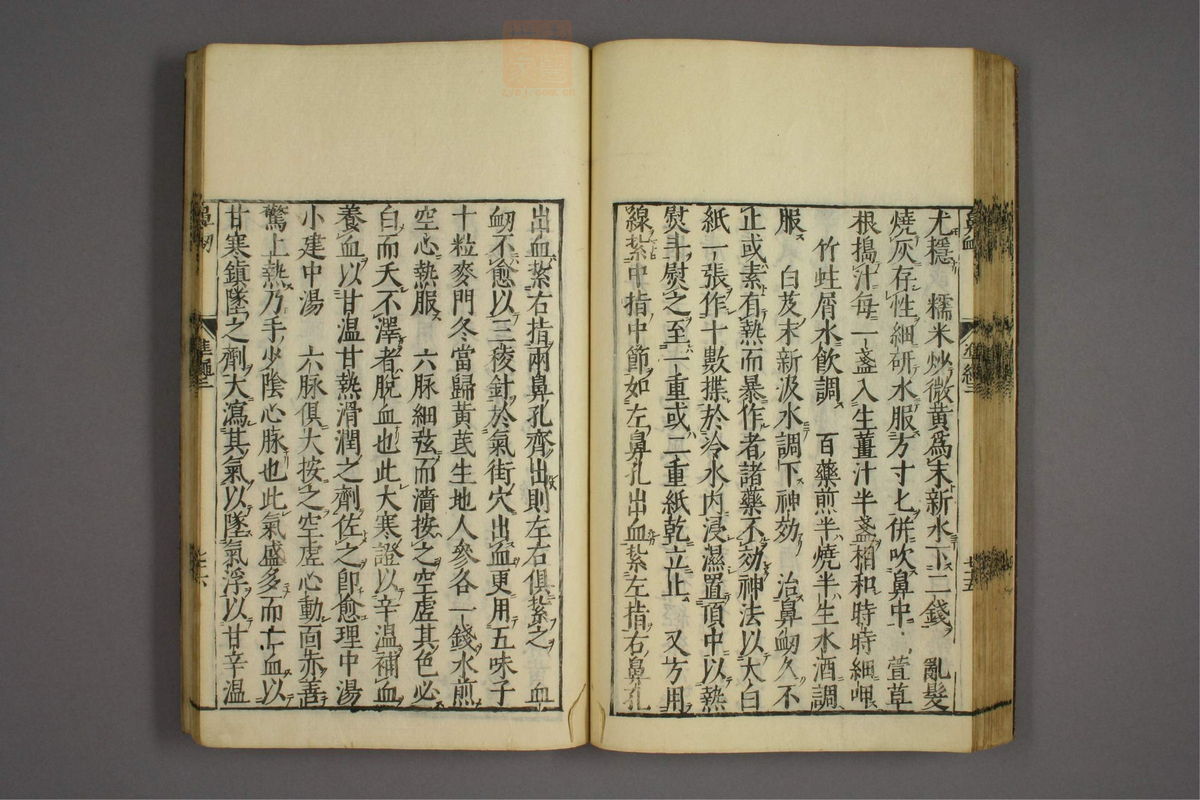 尤穩　糯米炒微黃爲末新水下二錢　亂髮
燒灰存性細研水服方寸匕併吹鼻中　萱草
根搗汁每一盞入生薑汁半盞相和時時細呷
竹蛀屑水飮調　百藥煎半燒半生水酒調
服　白芨末新汲水調下神効　治鼻衂久不
止或素有熱而暴作者諸藥不効神法以大白
紙一張作十數揲於冷水內浸濕置頂中以熱
熨斗熨之至一重或二重紙乾立止　又方用
線紮中指中節如左鼻孔出血紮左指右鼻孔
出血紮右指兩鼻孔齊出則左右俱紮之　血
衂不愈以三稜針於氣街穴出血更用五味子
十粒麥門冬當歸黃芪生地人參各一錢水煎
空心熱服　六脉細弦而濇按之空虛其色必
白而夭不澤者脫血也此大寒證以辛溫補血
養血以甘温甘熱滑潤之劑佐之卽愈理中湯
小建中湯　六脉俱大按之空虛心動面赤善
驚上熱乃手少陰心脉也此氣盛多而亡血以
甘寒鎭墜之劑大瀉其氣以墜氣浮以甘辛溫
鼻衂
廿五
鼻衂
廿六